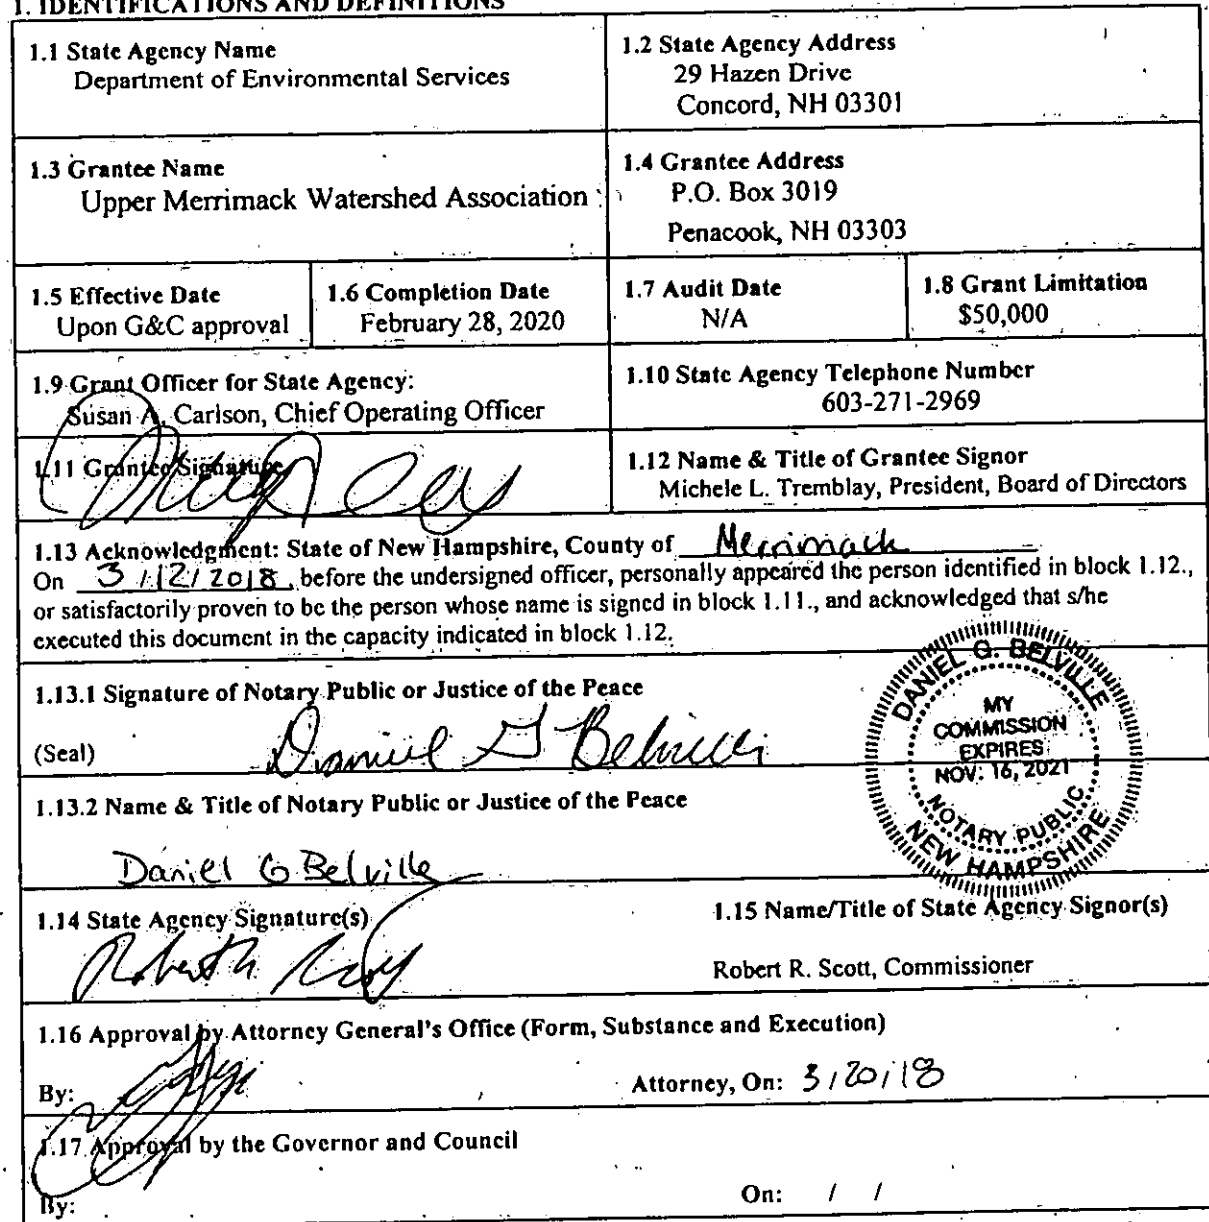 1. IDENTIFICATIONS AND DEFINITIONS
1.1 State Agency Name
Department of Environmental Services
1.2 State Agency Address
29 Hazen Drive
Concord, NH 03301
1.3 Grantee Name
Upper Merrimack Watershed Association
1.4 Grantee Address
P.O. Box 3019
Penacook, NH 03303
1.5 Effective Date
Upon G&C approval
1.6 Completion Date
February 28, 2020
1.7 Audit Date
N/A
1.8 Grant Limitation
$50,000
1.9 Grant Officer for State Agency:
Susan A. Carlson, Chief Operating Officer
1.10 State Agency Telephone Number
603-271-2969
1.11 Grantee Signature
1.12 Name & Title of Grantee Signor
Michele L. Tremblay, President, Board of Directors
1.13 Acknowledgment: State of New Hampshire, County of Merrimack
On 3/12/2018, before the undersigned officer, personally appeared the person identified in block 1.12.,
or satisfactorily proven to be the person whose name is signed in block 1.11., and acknowledged that s/he
executed this document in the capacity indicated in block 1.12.
1.13.1 Signature of Notary Public or Justice of the Peace
(Seal) Daniel G Belville
DANIEL G. BELVILLE
MY
COMMISSION
EXPIRES
NOV. 16, 2021
NOTARY PUBLIC
NEW HAMPSHIRE
1.13.2 Name & Title of Notary Public or Justice of the Peace
Daniel G Belville
1.14 State Agency Signature(s)
1.15 Name/Title of State Agency Signor(s)
Robert R. Scott, Commissioner
1.16 Approval by Attorney General's Office (Form, Substance and Execution)
By: Attorney, On: 3/20/18
1.17 Approval by the Governor and Council
By: On: / /